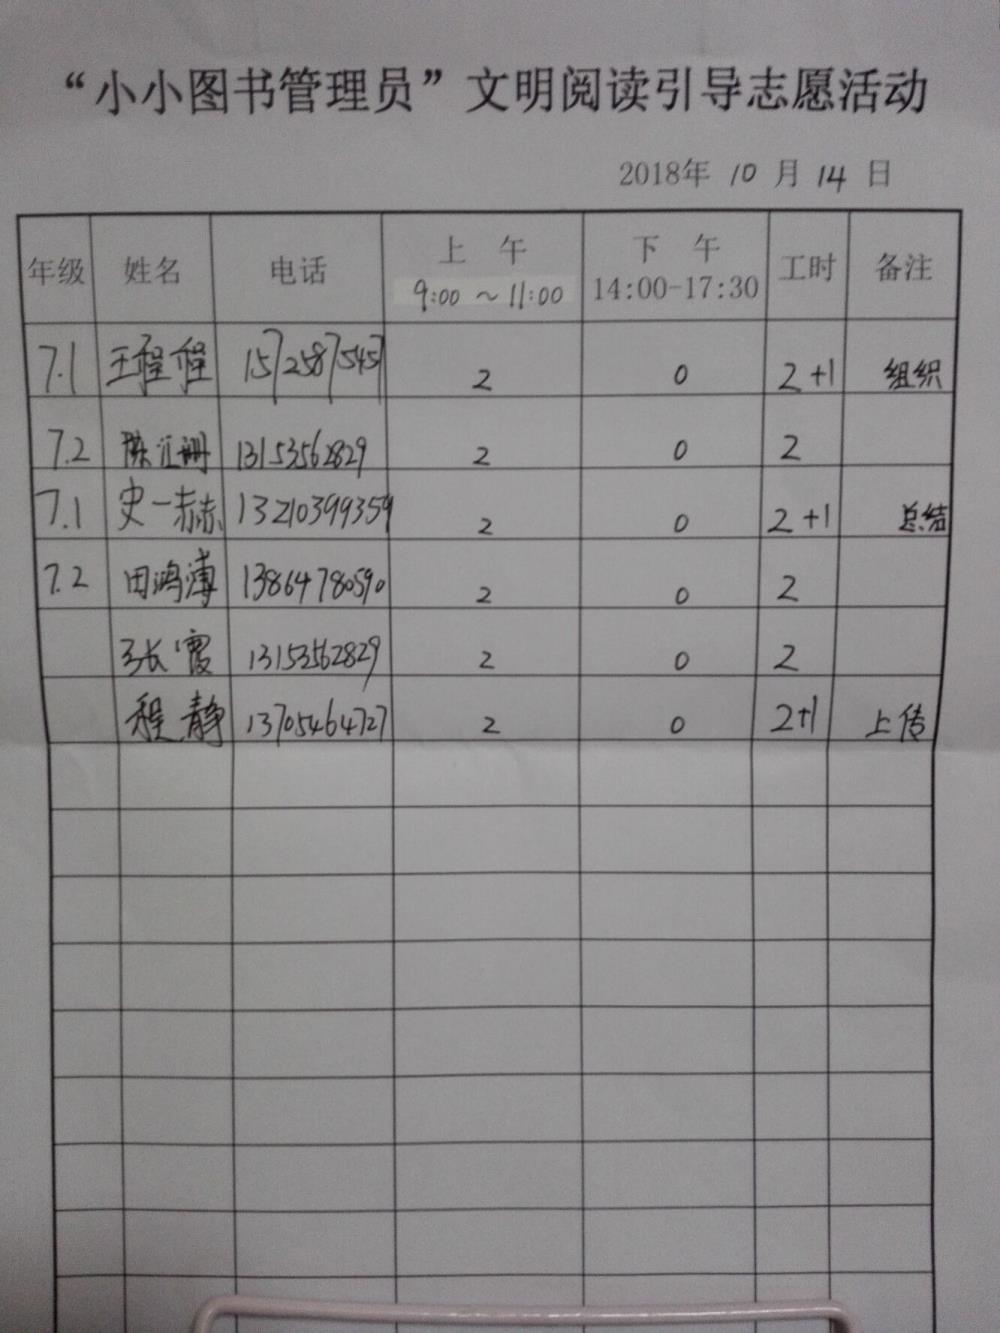 “小小图书管理员”文明阅读引导志愿活动
2018年 10 月 14 日
年级 姓名 电话 上 午 9:00 ~ 11:00 下 午 14:00-17:30 工时 备注
7.1 王程程 15725875457 2 0 2+1 组织
7.2 陈汇珊 13153562829 2 0 2
7.1 史一赫 13210399359 2 0 2+1 总结
7.2 田鸿溥 13864780590 2 0 2
张霞 13153562829 2 0 2
程静 13705464727 2 0 2+1 上传